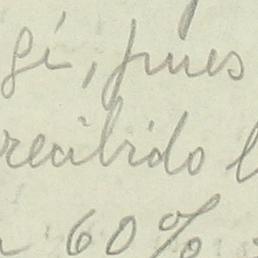 gí, pues
recibido l
60%